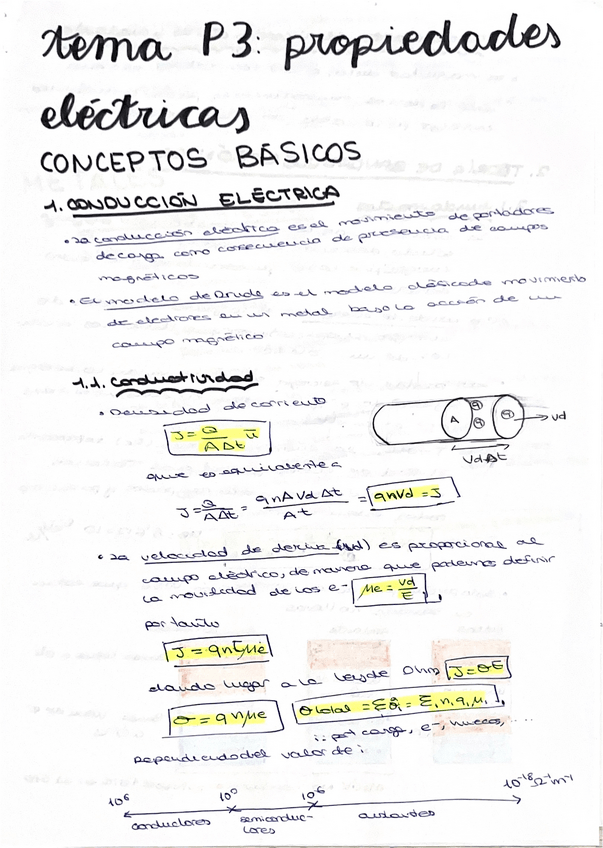 tema P3: propiedades
eléctricas
CONCEPTOS BÁSICOS
1. CONDUCCIÓN ELÉCTRICA
• La conducción eléctrica es el movimiento de portadores
de carga como consecuencia de presencia de campos
magnéticos
• El modelo de Drude es el modelo clásico de movimiento
de electrones en un metal bajo la acción de un
campo magnético
1.1. Conductividad
• Densidad de corriente
J = Q / AΔt u
A q q q → vd
VdΔt
que es equivalente a
J = Q / AΔt = q n A Vd Δt / A t = q n Vd = J
• La velocidad de deriva (vd) es proporcional al
campo eléctrico, de manera que podemos definir
la movilidad de los e- μe = vd / E ,
por tanto
J = q n E μe
dando lugar a la ley de Ohm J = σE
σ = q n μe σtotal = Σσi = Σi ni qi μi ,
i: por carga, e-, huecos, ...
Dependiendo del valor de :
10⁶ 10⁰ 10⁻⁶ 10⁻¹⁸ Ω⁻¹m⁻¹
conductores semiconduc- aislantes
tores